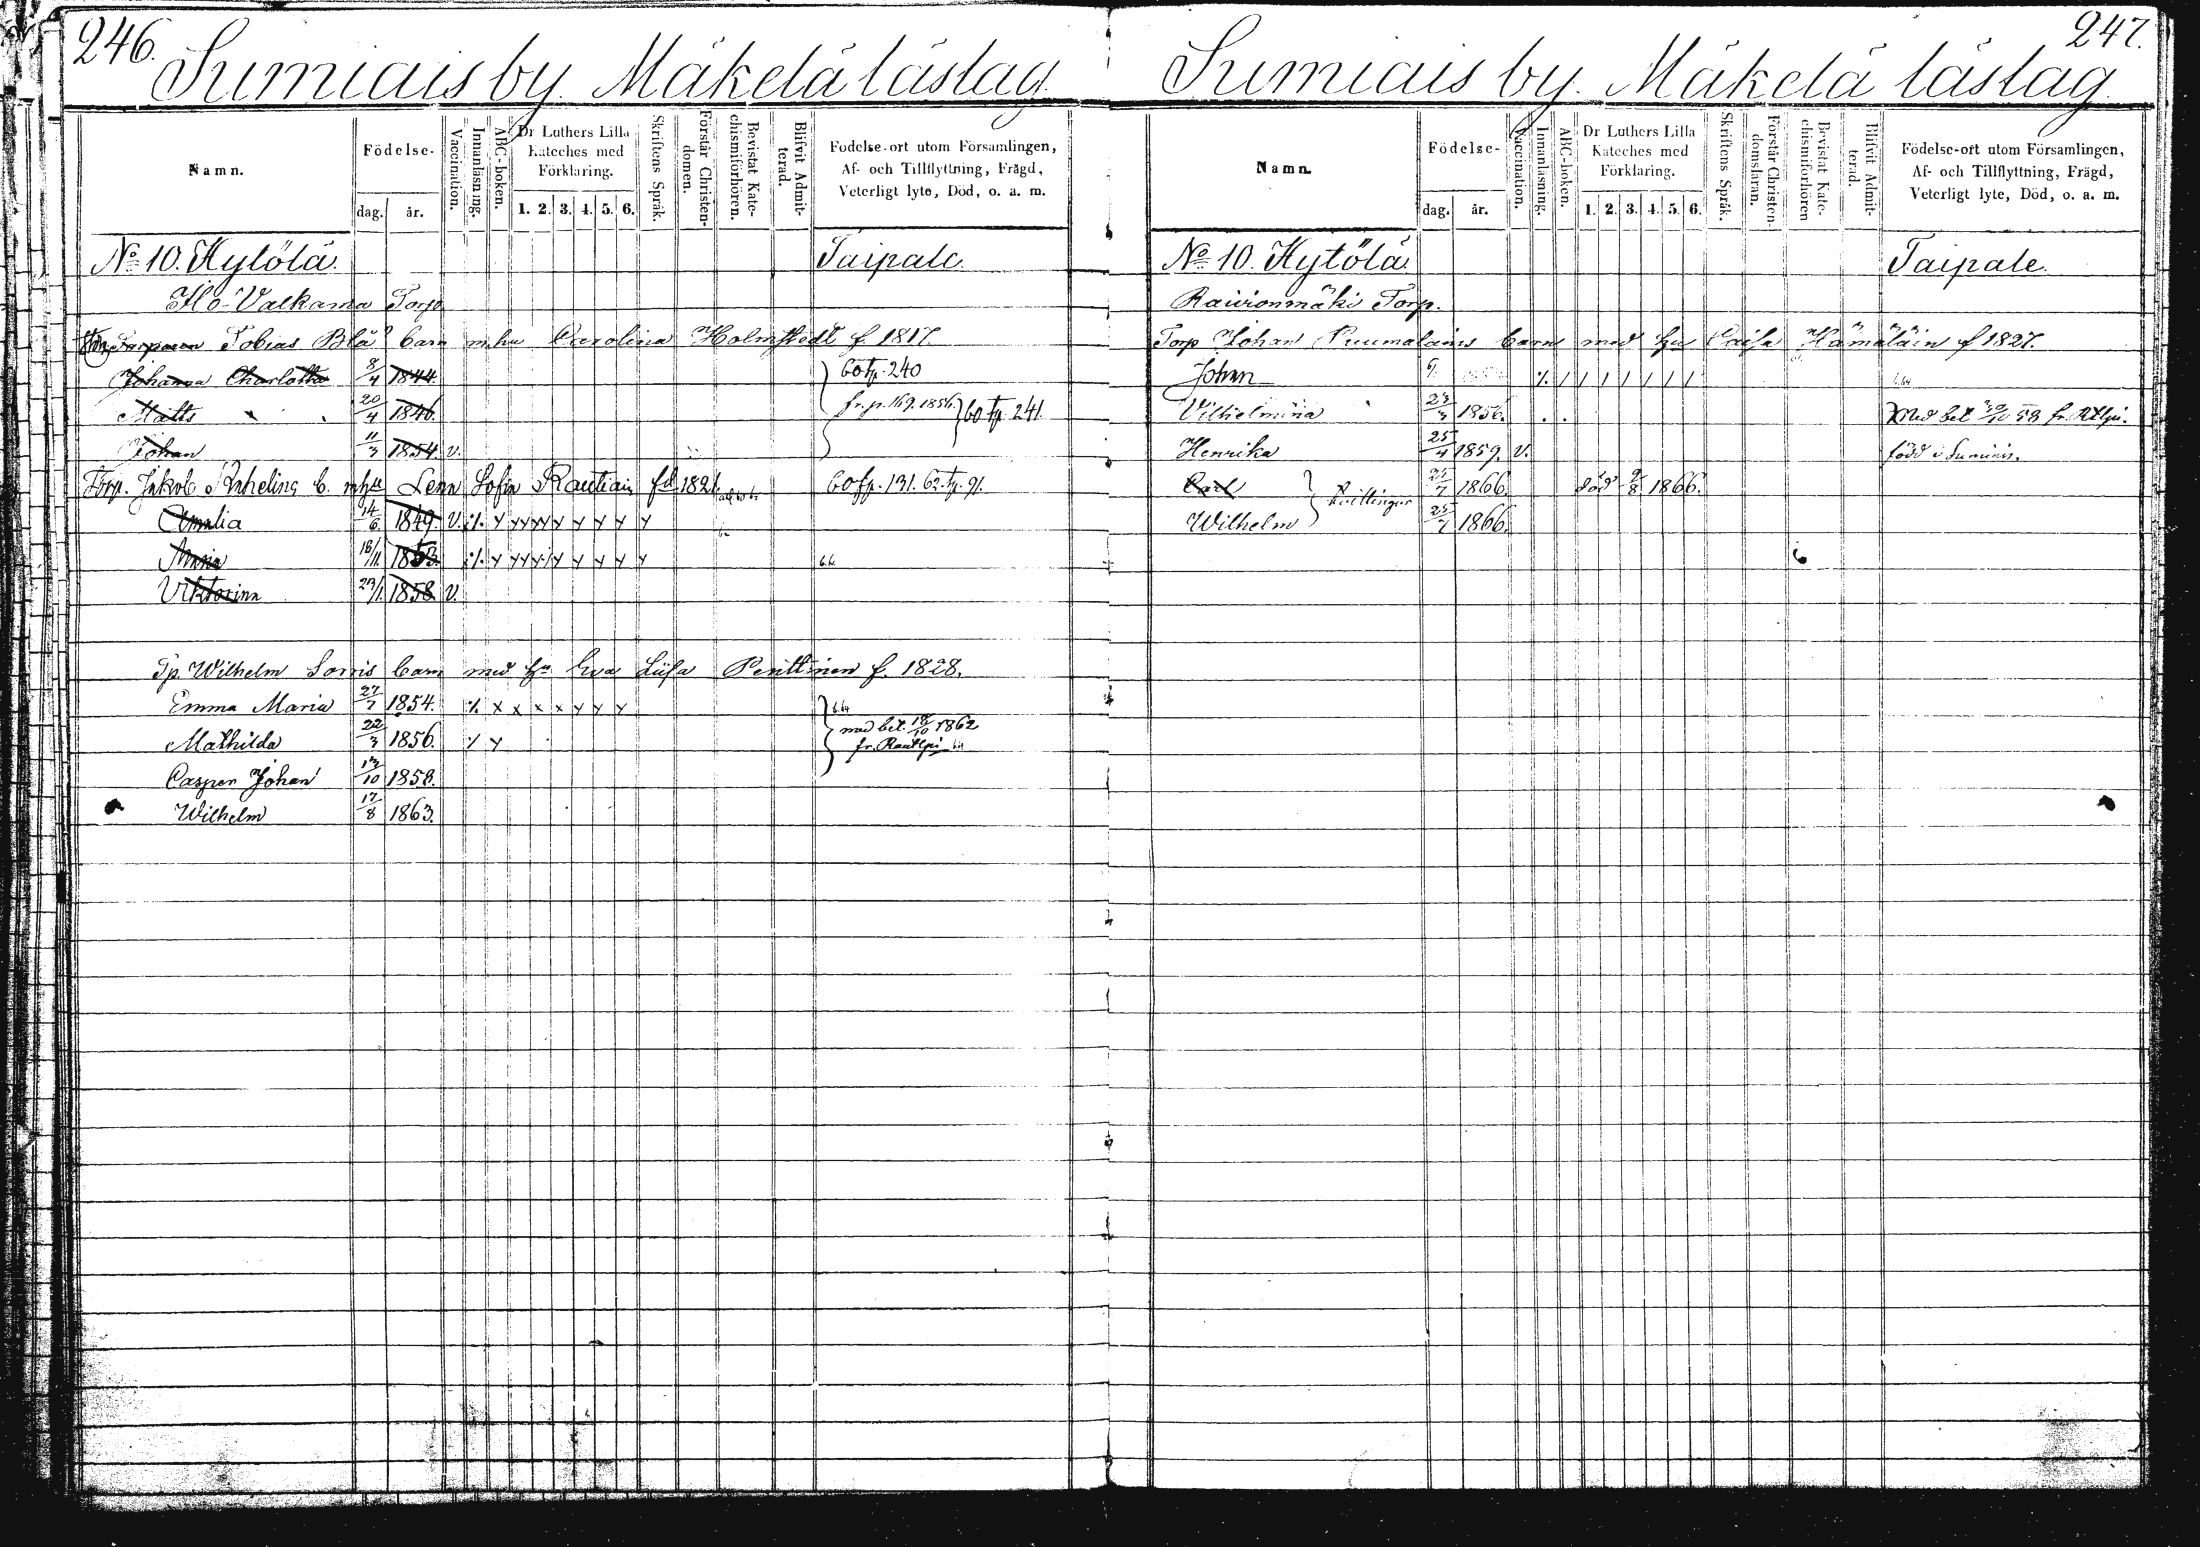 246.
Sumiais by. Mäkelä läslag.
Namn.
Födelse-
dag. år.
Vaccination.
Innanläsning.
ABC-boken.
Dr Luthers Lilla Kateches med Förklaring.
1. 2. 3. 4. 5. 6.
Skriftens Språk.
Förstår Christen-domen.
Bevistat Kate-chismiförhören.
Blifvit Admit-terad.
Födelse-ort utom Församlingen, Af- och Tillflyttning, Frägd, Veterligt lyte, Död, o. a. m.
No 10. Hytölä. Taipale.
Ilo-Valkama Torp
Torparen Tobias Blå barn m hu Carolina Holmstedt f. 1817.
Johanna Charlotta 8/4 1844. 60 tp. 240
Matts 20/4 1846. fr. p. 169. 1856. 60 tp. 241.
Johan 11/3 1854. v.
Torp. Jakob b. m hu Lena Sofia Rautiain fd 1821. 60 fp. 131. 62. tp. 91.
Amalia 14/6 1849. v. ⁒ y yy yy y y y y y
Maria 18/11. 1853. ⁒ y yy y y y y y y
Viktorina 23/1. 1858. v.
Tp. Wilhelm Sorris barn med hu Eva Liisa Penttinen f. 1828.
Emma Maria 27/7 1854. ⁒ x x x x y y y
Mathilda 22/3 1856. ⁒ y med bet. 18/10 1862
fr. Rautlpi
Casper Johan 13/10 1858.
Wilhelm 17/8 1863.
247.
Sumiais by. Mäkelä läslag.
Namn.
Födelse-
dag. år.
Vaccination.
Innanläsning.
ABC-boken.
Dr Luthers Lilla Kateches med Förklaring.
1. 2. 3. 4. 5. 6.
Skriftens Språk.
Förstår Christen-domsläran.
Bevistat Kate-chismiförhören
Blifvit Admit-terad.
Födelse-ort utom Församlingen, Af- och Tillflyttning, Frägd, Veterligt lyte, Död, o. a. m.
No 10. Hytölä. Taipale.
Raivionmäki Torp.
Torp Johan Puumalains barn med hu Caisa Hämäläin f 1827.
Johan ⁒ / / / / / / /
Vilhelmina 23/3 1856. Med bet 30/10 58 fr. Rtlpi.
Henrika 25/4 1859. v. född i Sumiais.
Carl 25/7 1866. död 9/8 1866.
Tvillingar
Wilhelm 25/7 1866.